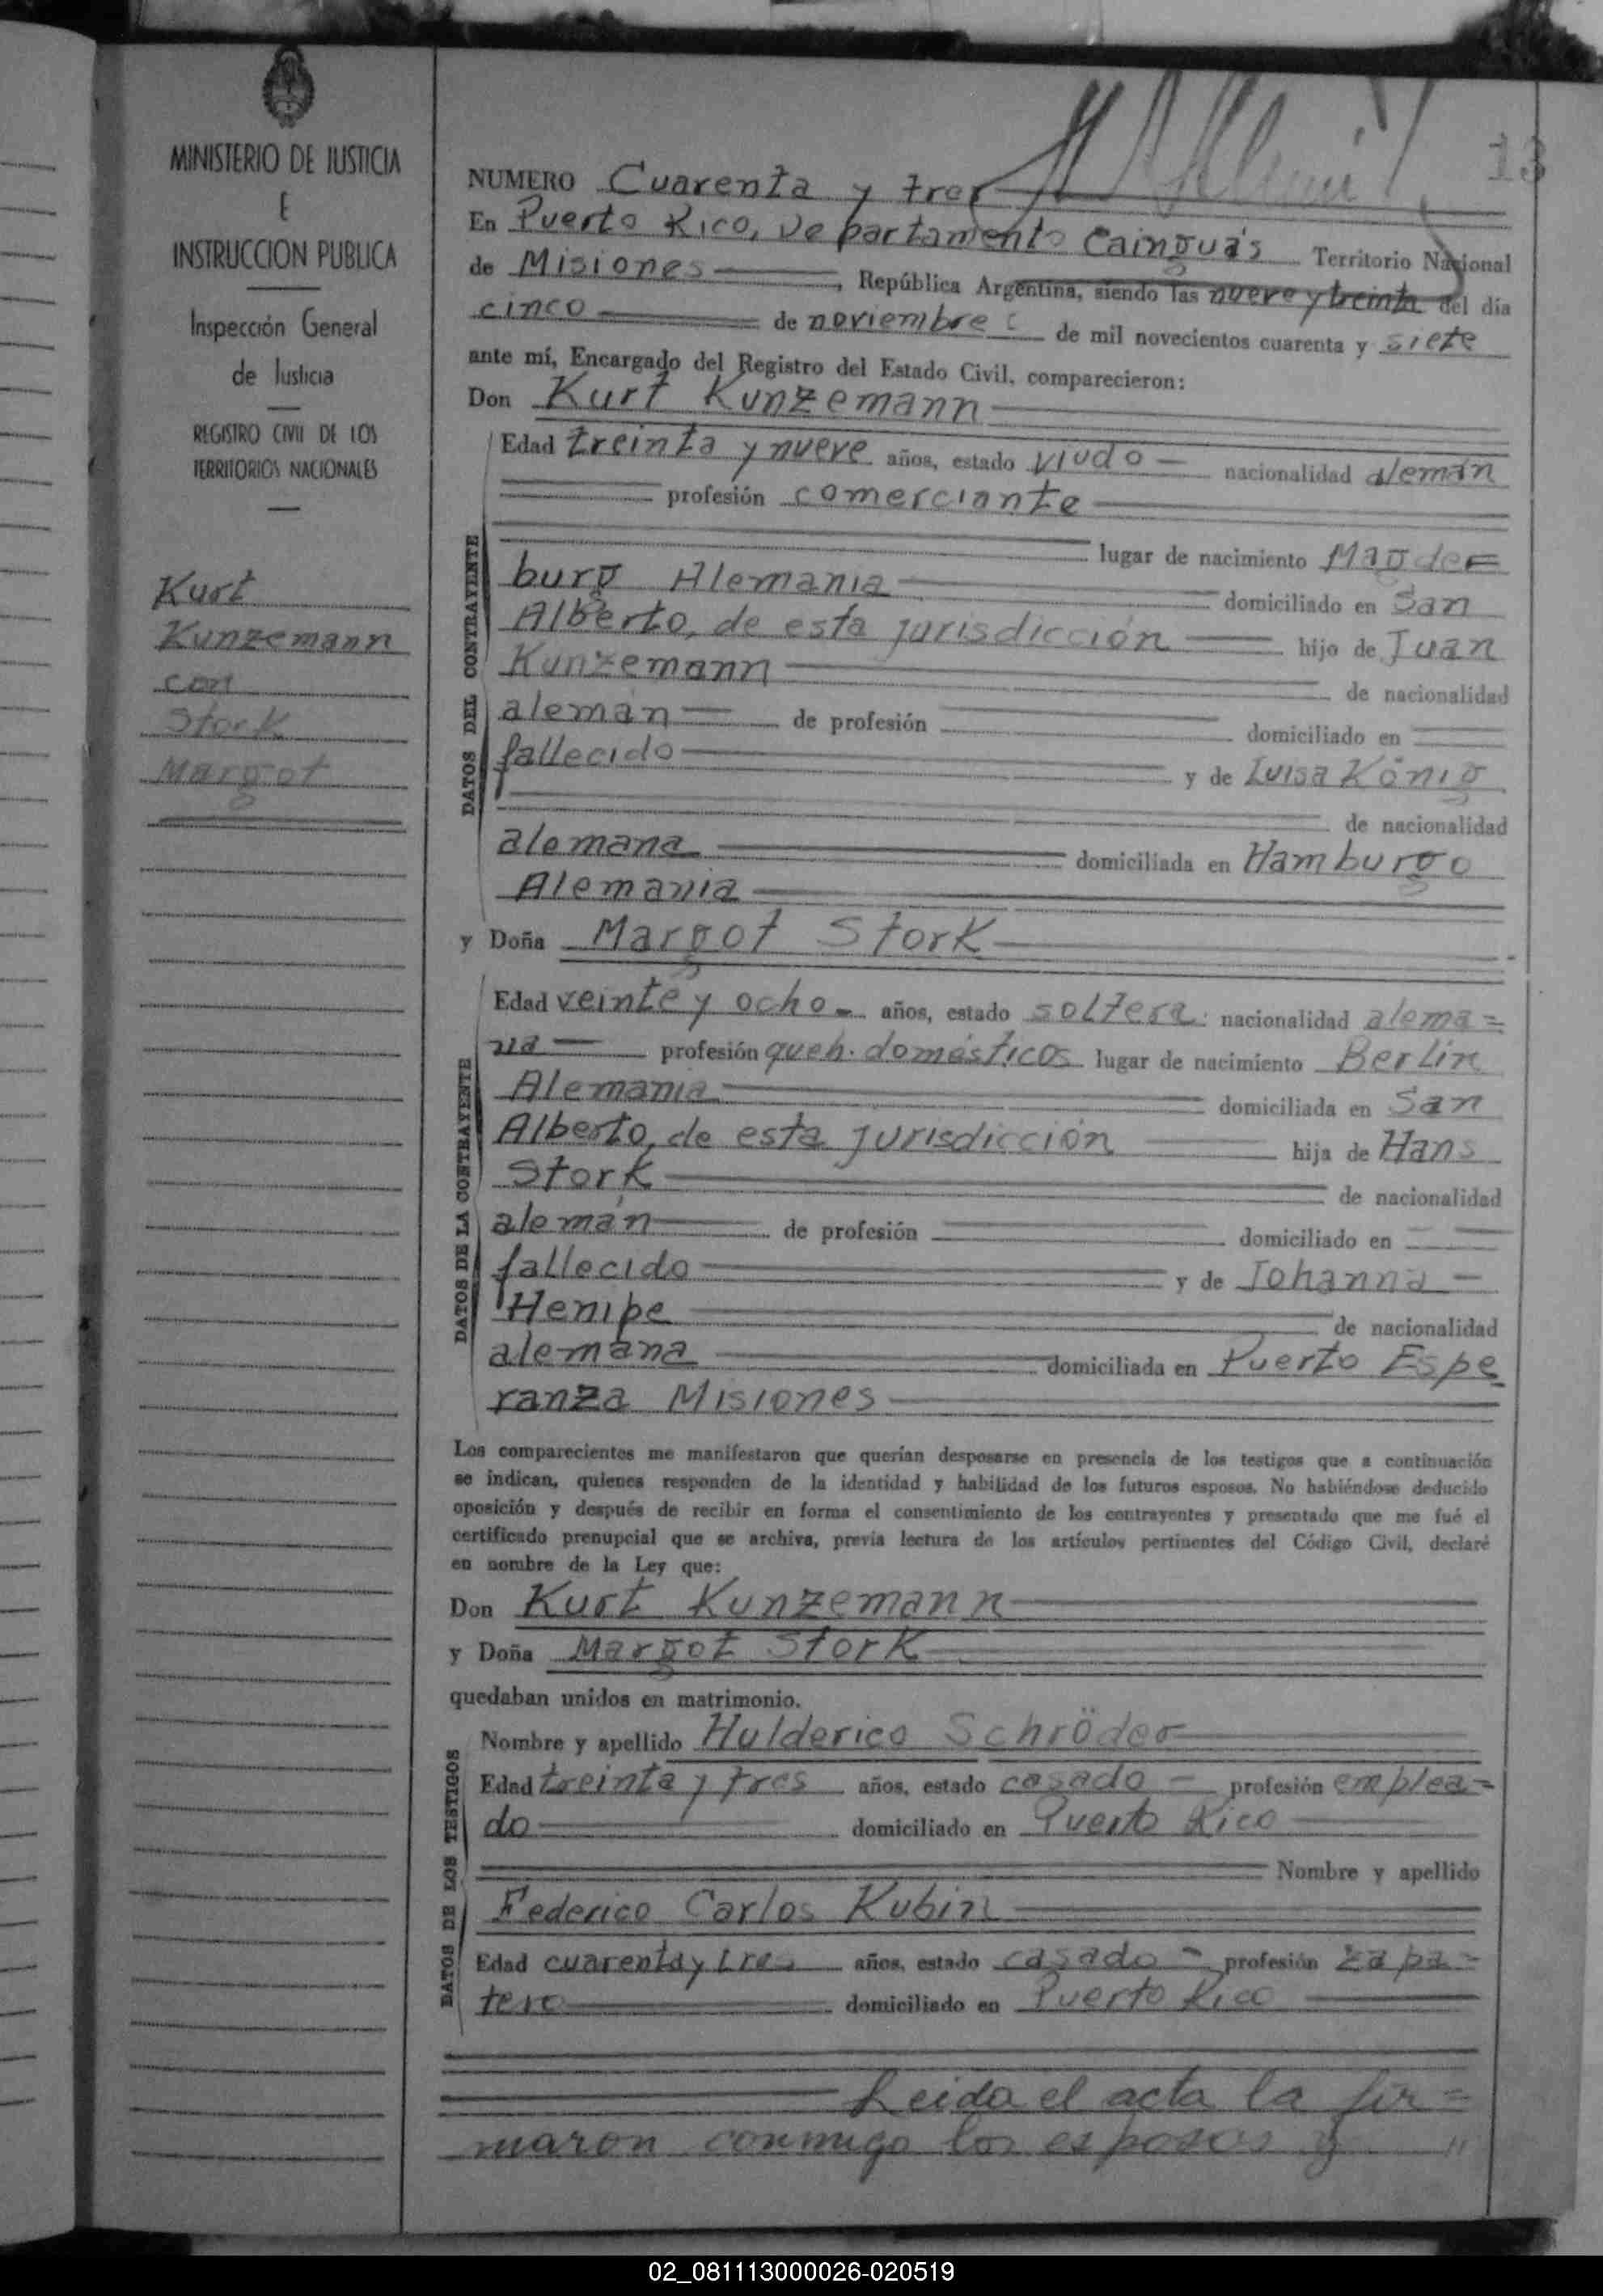 MINISTERIO DE JUSTICIA
E
INSTRUCCION PUBLICA
Inspección General
de Justicia
REGISTRO CIVIL DE LOS
TERRITORIOS NACIONALES
Kurt
Kunzemann
con
Stork
Margot
13
NUMERO Cuarenta y tres
En Puerto Rico, Departamento Cainguás Territorio Nacional
de Misiones, República Argentina, siendo las nueve y treinta del día
cinco de noviembre de mil novecientos cuarenta y siete
ante mí, Encargado del Registro del Estado Civil, comparecieron:
Don Kurt Kunzemann
DATOS DEL CONTRAYENTE
Edad treinta y nueve años, estado viudo — nacionalidad alemán
profesión comerciante
lugar de nacimiento Magde=
burg Alemania domiciliado en San
Alberto, de esta jurisdicción hijo de Juan
Kunzemann de nacionalidad
alemán de profesión domiciliado en
fallecido y de Luisa König
de nacionalidad
alemana domiciliada en Hamburgo
Alemania
y Doña Margot Stork
DATOS DE LA CONTRAYENTE
Edad veinte y ocho — años, estado soltera nacionalidad alema=
na — profesión queh. domésticos lugar de nacimiento Berlin
Alemania domiciliada en San
Alberto, de esta jurisdicción hija de Hans
Stork de nacionalidad
alemán de profesión domiciliado en
fallecido y de Johanna —
Henipe de nacionalidad
alemana domiciliada en Puerto Espe
ranza Misiones
Los comparecientes me manifestaron que querían desposarse en presencia de los testigos que a continuación
se indican, quienes responden de la identidad y habilidad de los futuros esposos. No habiéndose deducido
oposición y después de recibir en forma el consentimiento de los contrayentes y presentado que me fué el
certificado prenupcial que se archiva, previa lectura de los artículos pertinentes del Código Civil, declaré
en nombre de la Ley que:
Don Kurt Kunzemann
y Doña Margot Stork
quedaban unidos en matrimonio.
DATOS DE LOS TESTIGOS
Nombre y apellido Hulderico Schröder
Edad treinta y tres años, estado casado — profesión emplea=
do domiciliado en Puerto Rico
Nombre y apellido
Federico Carlos Kubin
Edad cuarenta y tres años, estado casado — profesión zapa=
tero domiciliado en Puerto Rico
Leida el acta la fir=
maron conmigo los esposos y "
02_081113000026-020519